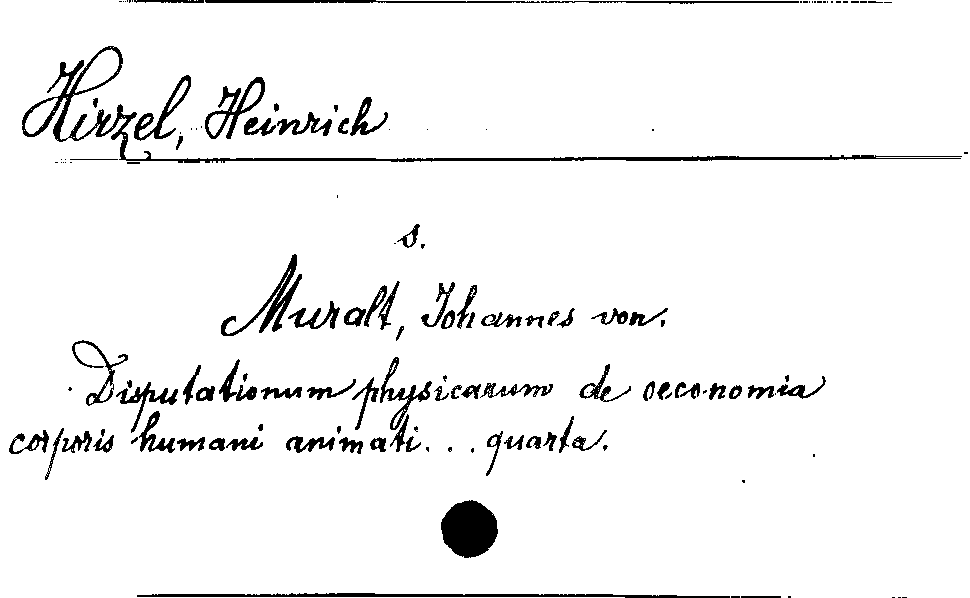 Hirzel, Heinrich
s.
Muralt, Johannes von.
Disputationum physicarum de oeconomia
corporis humani animati... quarta.